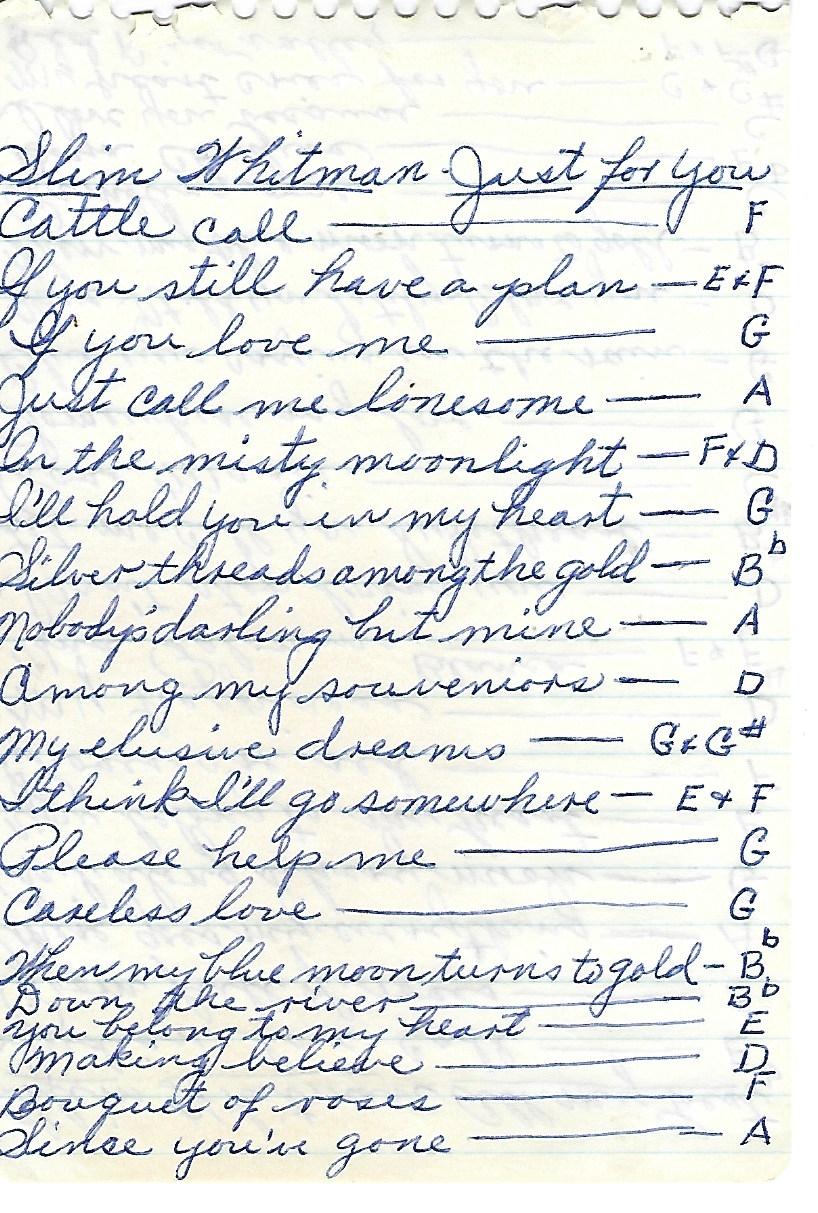 Slim Whitman - Just for You
Cattle call — F
If you still have a plan — E & F
If you love me — G
Just call me lonesome — A
In the misty moonlight — F & D
I'll hold you in my heart — G
Silver threads among the gold — Bb
Nobody's darling but mine — A
Among my souveniors — D
My elusive dreams — G & G#
I think I'll go somewhere — E & F
Please help me — G
Careless love — G
When my blue moon turns to gold — Bb
Down the river — Bb
You belong to my heart — E
Making believe — D
Bouquet of roses — F
Since you've gone — A